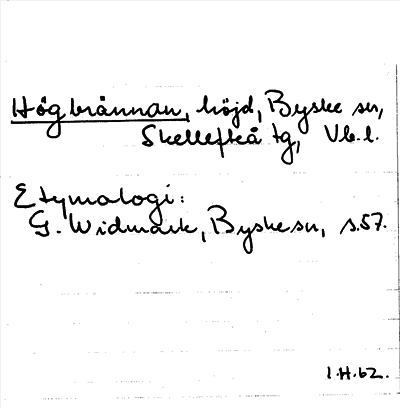 Högbrännan, höjd, Byske sn,
Skellefteå tg, Vb. l.
Etymologi:
G. Widmark, Byske sn, s. 57.
I.H. 62.